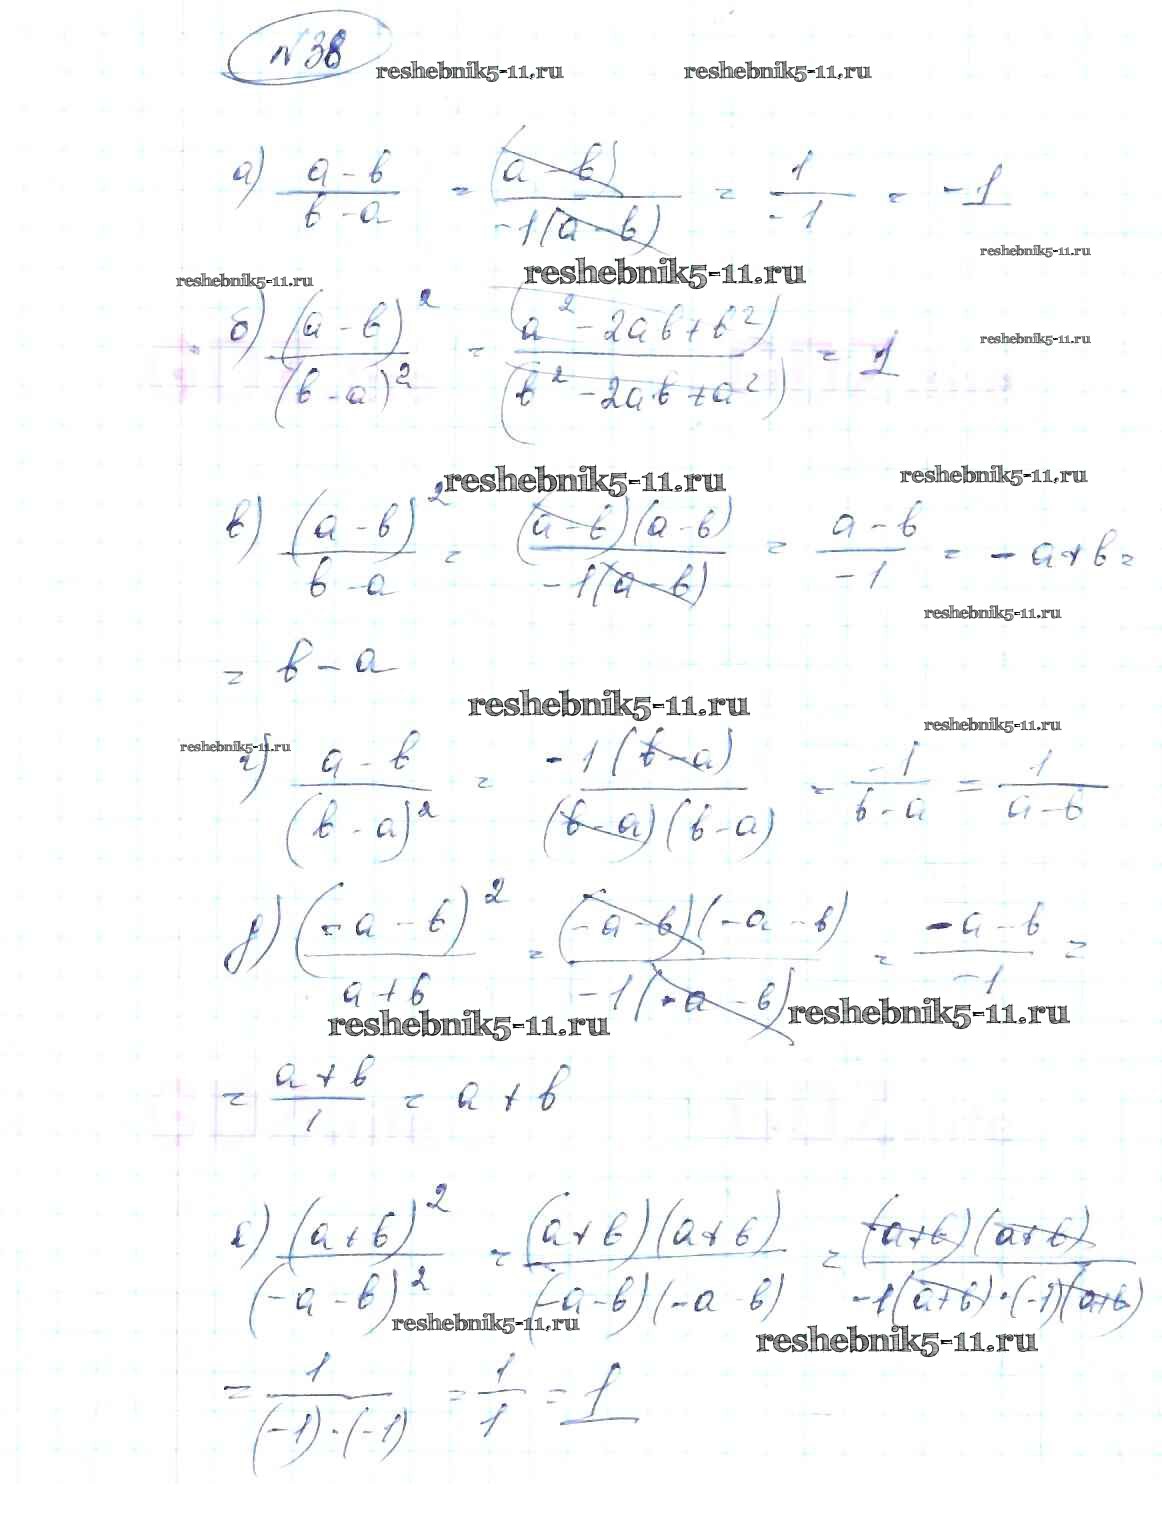 №38
reshebnik5-11.ru reshebnik5-11.ru
а) (a - b)/(b - a) = (a - b)/(-1(a - b)) = 1/(-1) = -1
reshebnik5-11.ru
reshebnik5-11.ru reshebnik5-11.ru
б) (a - b)²/(b - a)² = (a² - 2ab + b²)/(b² - 2ab + a²) = 1
reshebnik5-11.ru
reshebnik5-11.ru reshebnik5-11.ru
в) (a - b)²/(b - a) = (a - b)(a - b)/(-1(a - b)) = (a - b)/(-1) = - a + b =
reshebnik5-11.ru
= b - a
reshebnik5-11.ru
reshebnik5-11.ru reshebnik5-11.ru
г) (a - b)/(b - a)² = -1(b - a)/((b - a)(b - a)) = -1/(b - a) = 1/(a - b)
д) (-a - b)²/(a + b) = (-a - b)(-a - b)/(-1(-a - b)) = (-a - b)/(-1) =
reshebnik5-11.ru reshebnik5-11.ru
= (a + b)/1 = a + b
е) (a + b)²/(-a - b)² = (a + b)(a + b)/((-a - b)(-a - b)) = (a + b)(a + b)/(-1(a + b)·(-1)(a + b))
reshebnik5-11.ru reshebnik5-11.ru
= 1/((-1)·(-1)) = 1/1 = 1